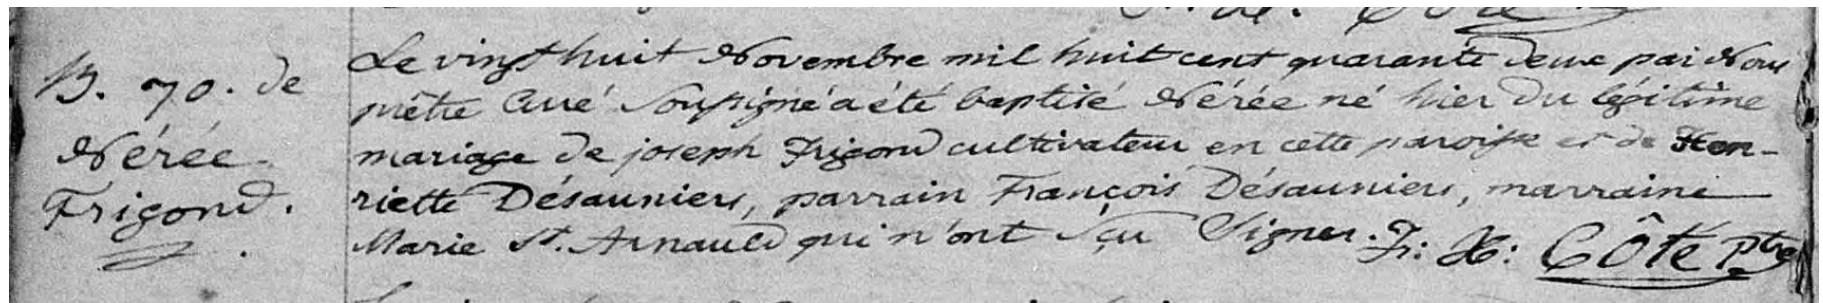 B. 70. de
Nérée
Frigond.
Le vingt huit Novembre mil huit cent quarante deux par Nous
prêtre Curé Soussigné a été baptisé Nérée né hier du légitime
mariage de joseph Frigond cultivateur en cette paroisse et de Hen-
riette Désauniers, parrain François Désauniers, marraine
Marie St. Arnauld qui n'ont sçu Signer. Fr: X: CÔté Ptre